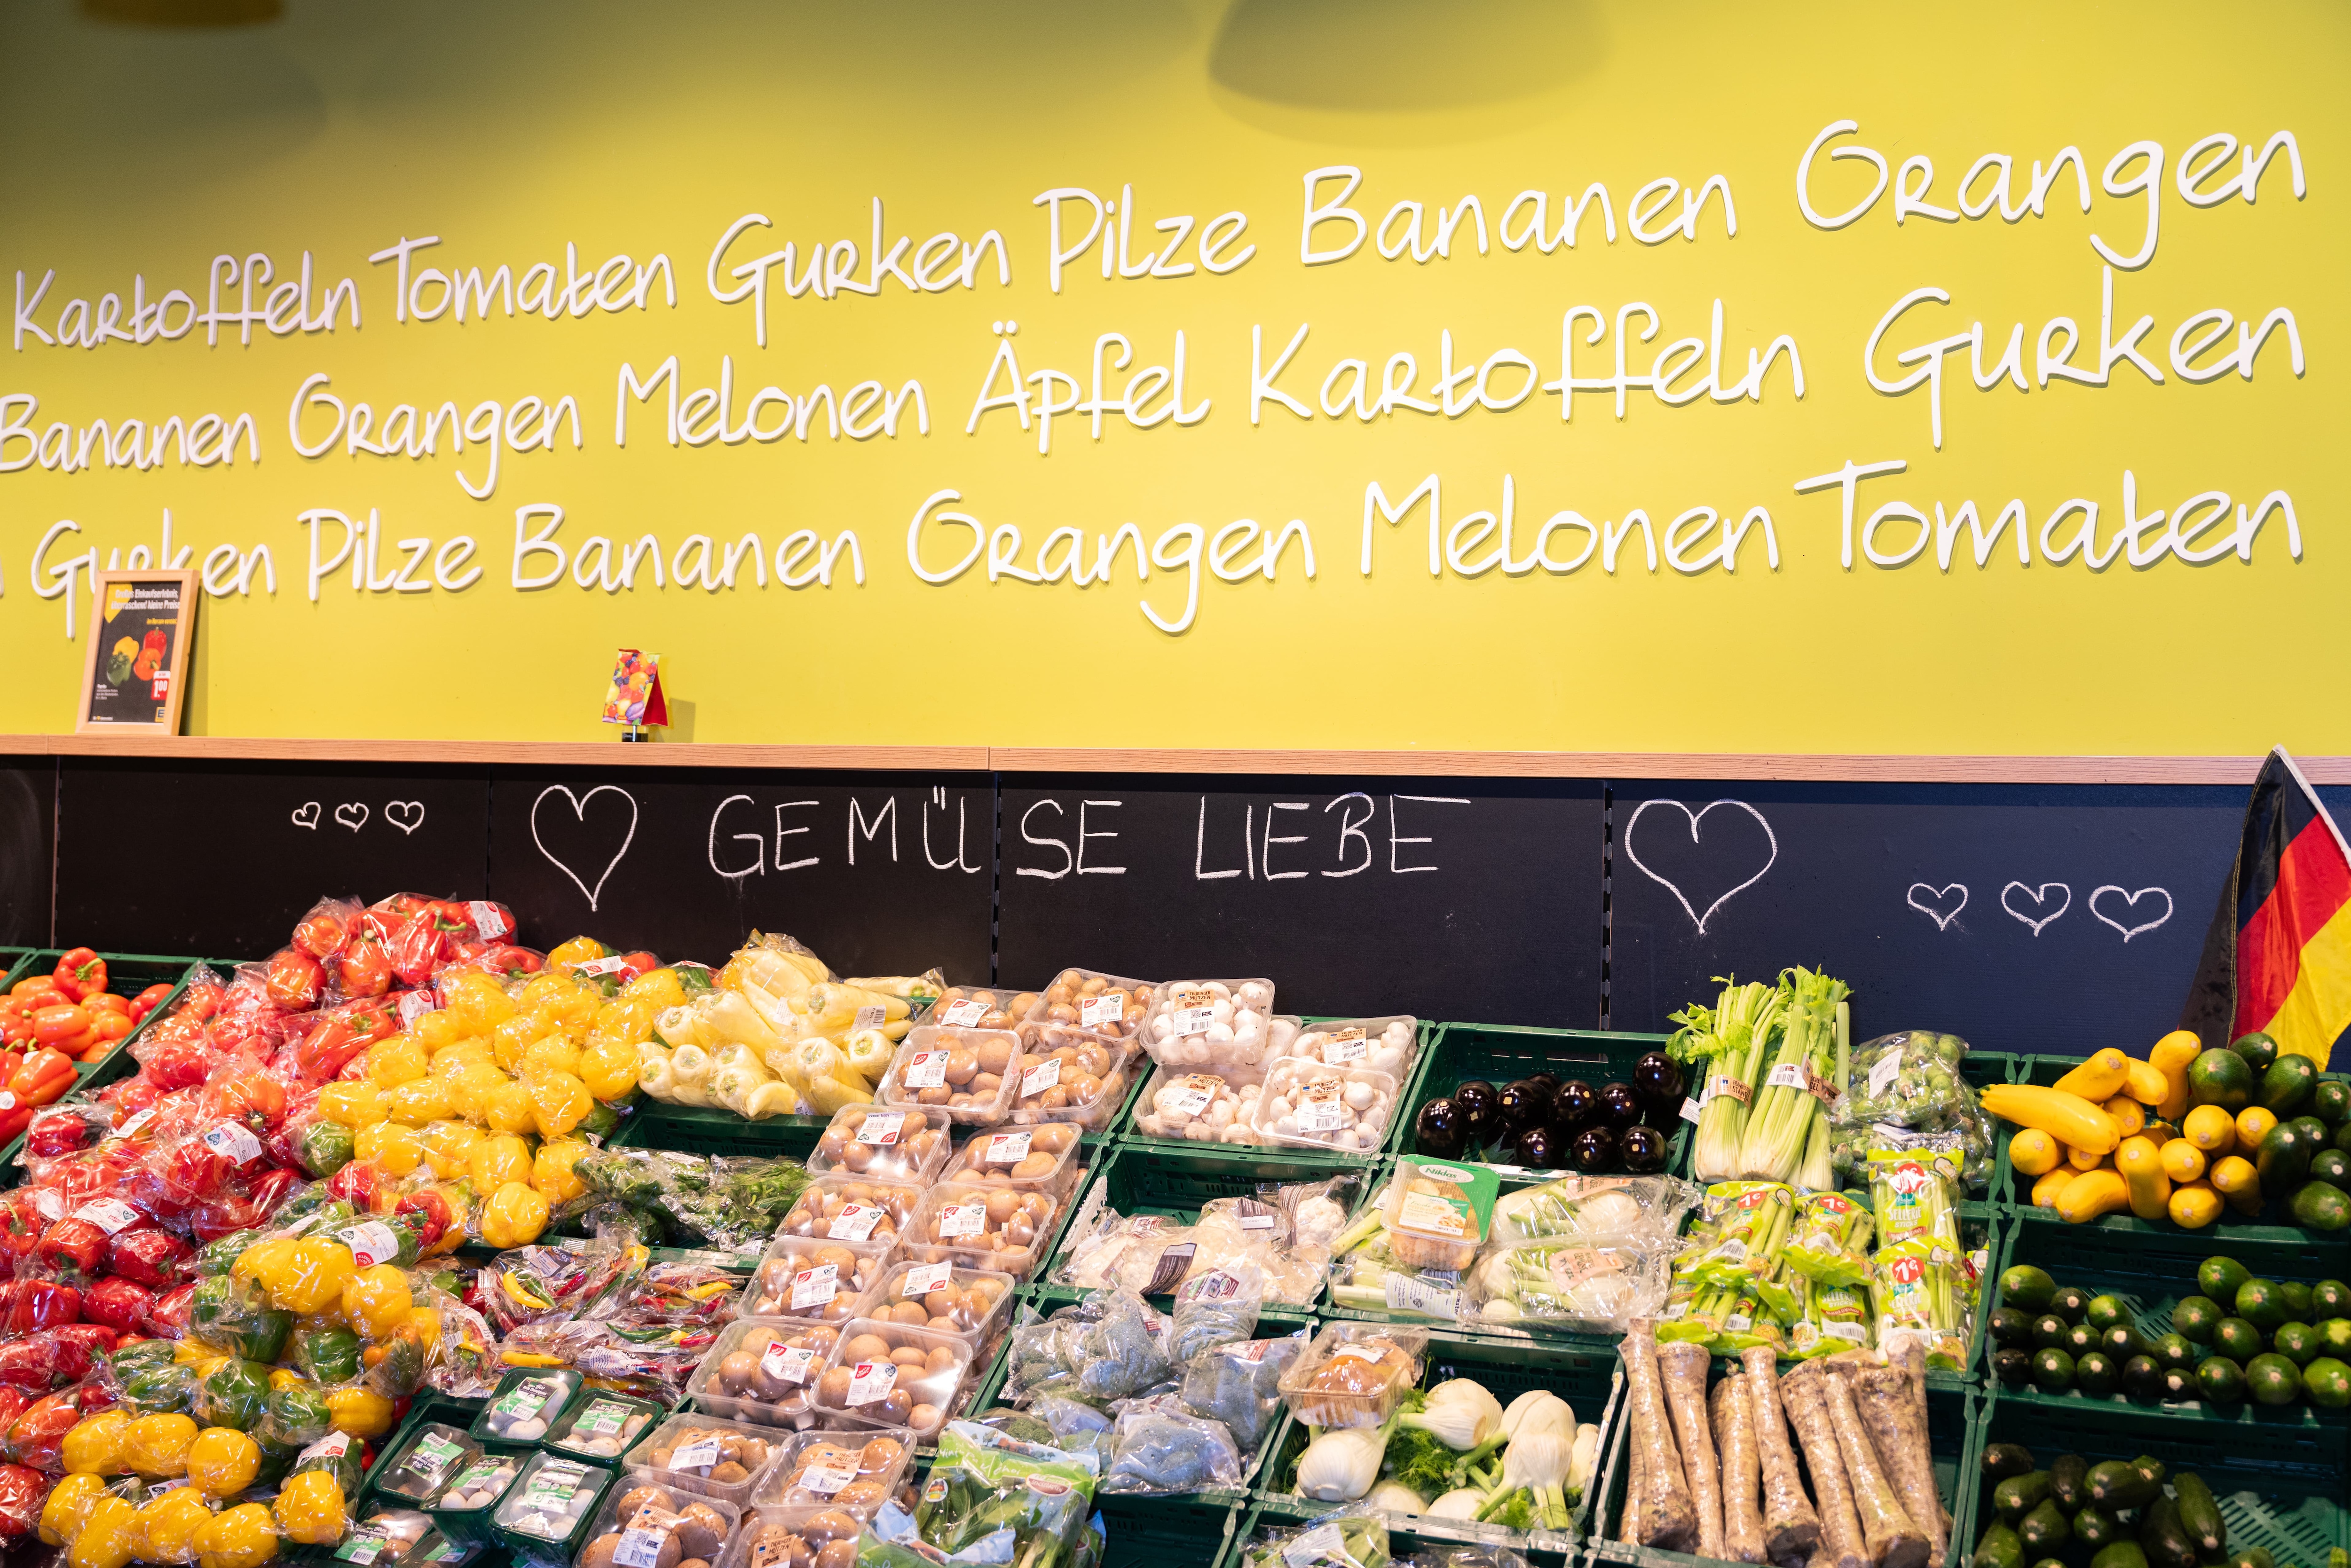 Kartoffeln Tomaten Gurken Pilze Bananen Orangen
Bananen Orangen Melonen Äpfel Kartoffeln Gurken
Gurken Pilze Bananen Orangen Melonen Tomaten
GEMÜSE LIEBE
Niklas
1€
1€